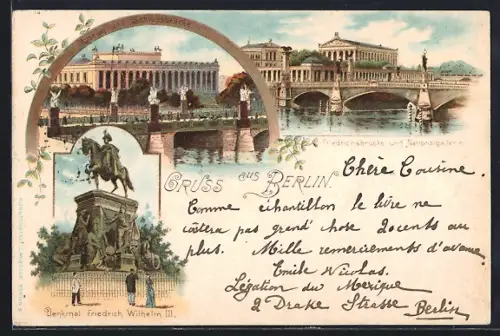 Museum und Schlossbrücke
Friedrichsbrücke und Nationalgalerie
GRUSS AUS BERLIN.
Denkmal Friedrich Wilhelm III.
Chère Cousine.
Comme échantillon le livre ne
coûtera pas grand' chose 20cents au
plus. Mille remerciements d'avance
Emile Nicolas.
Légation du Mexique
2 Drake Strasse Berlin